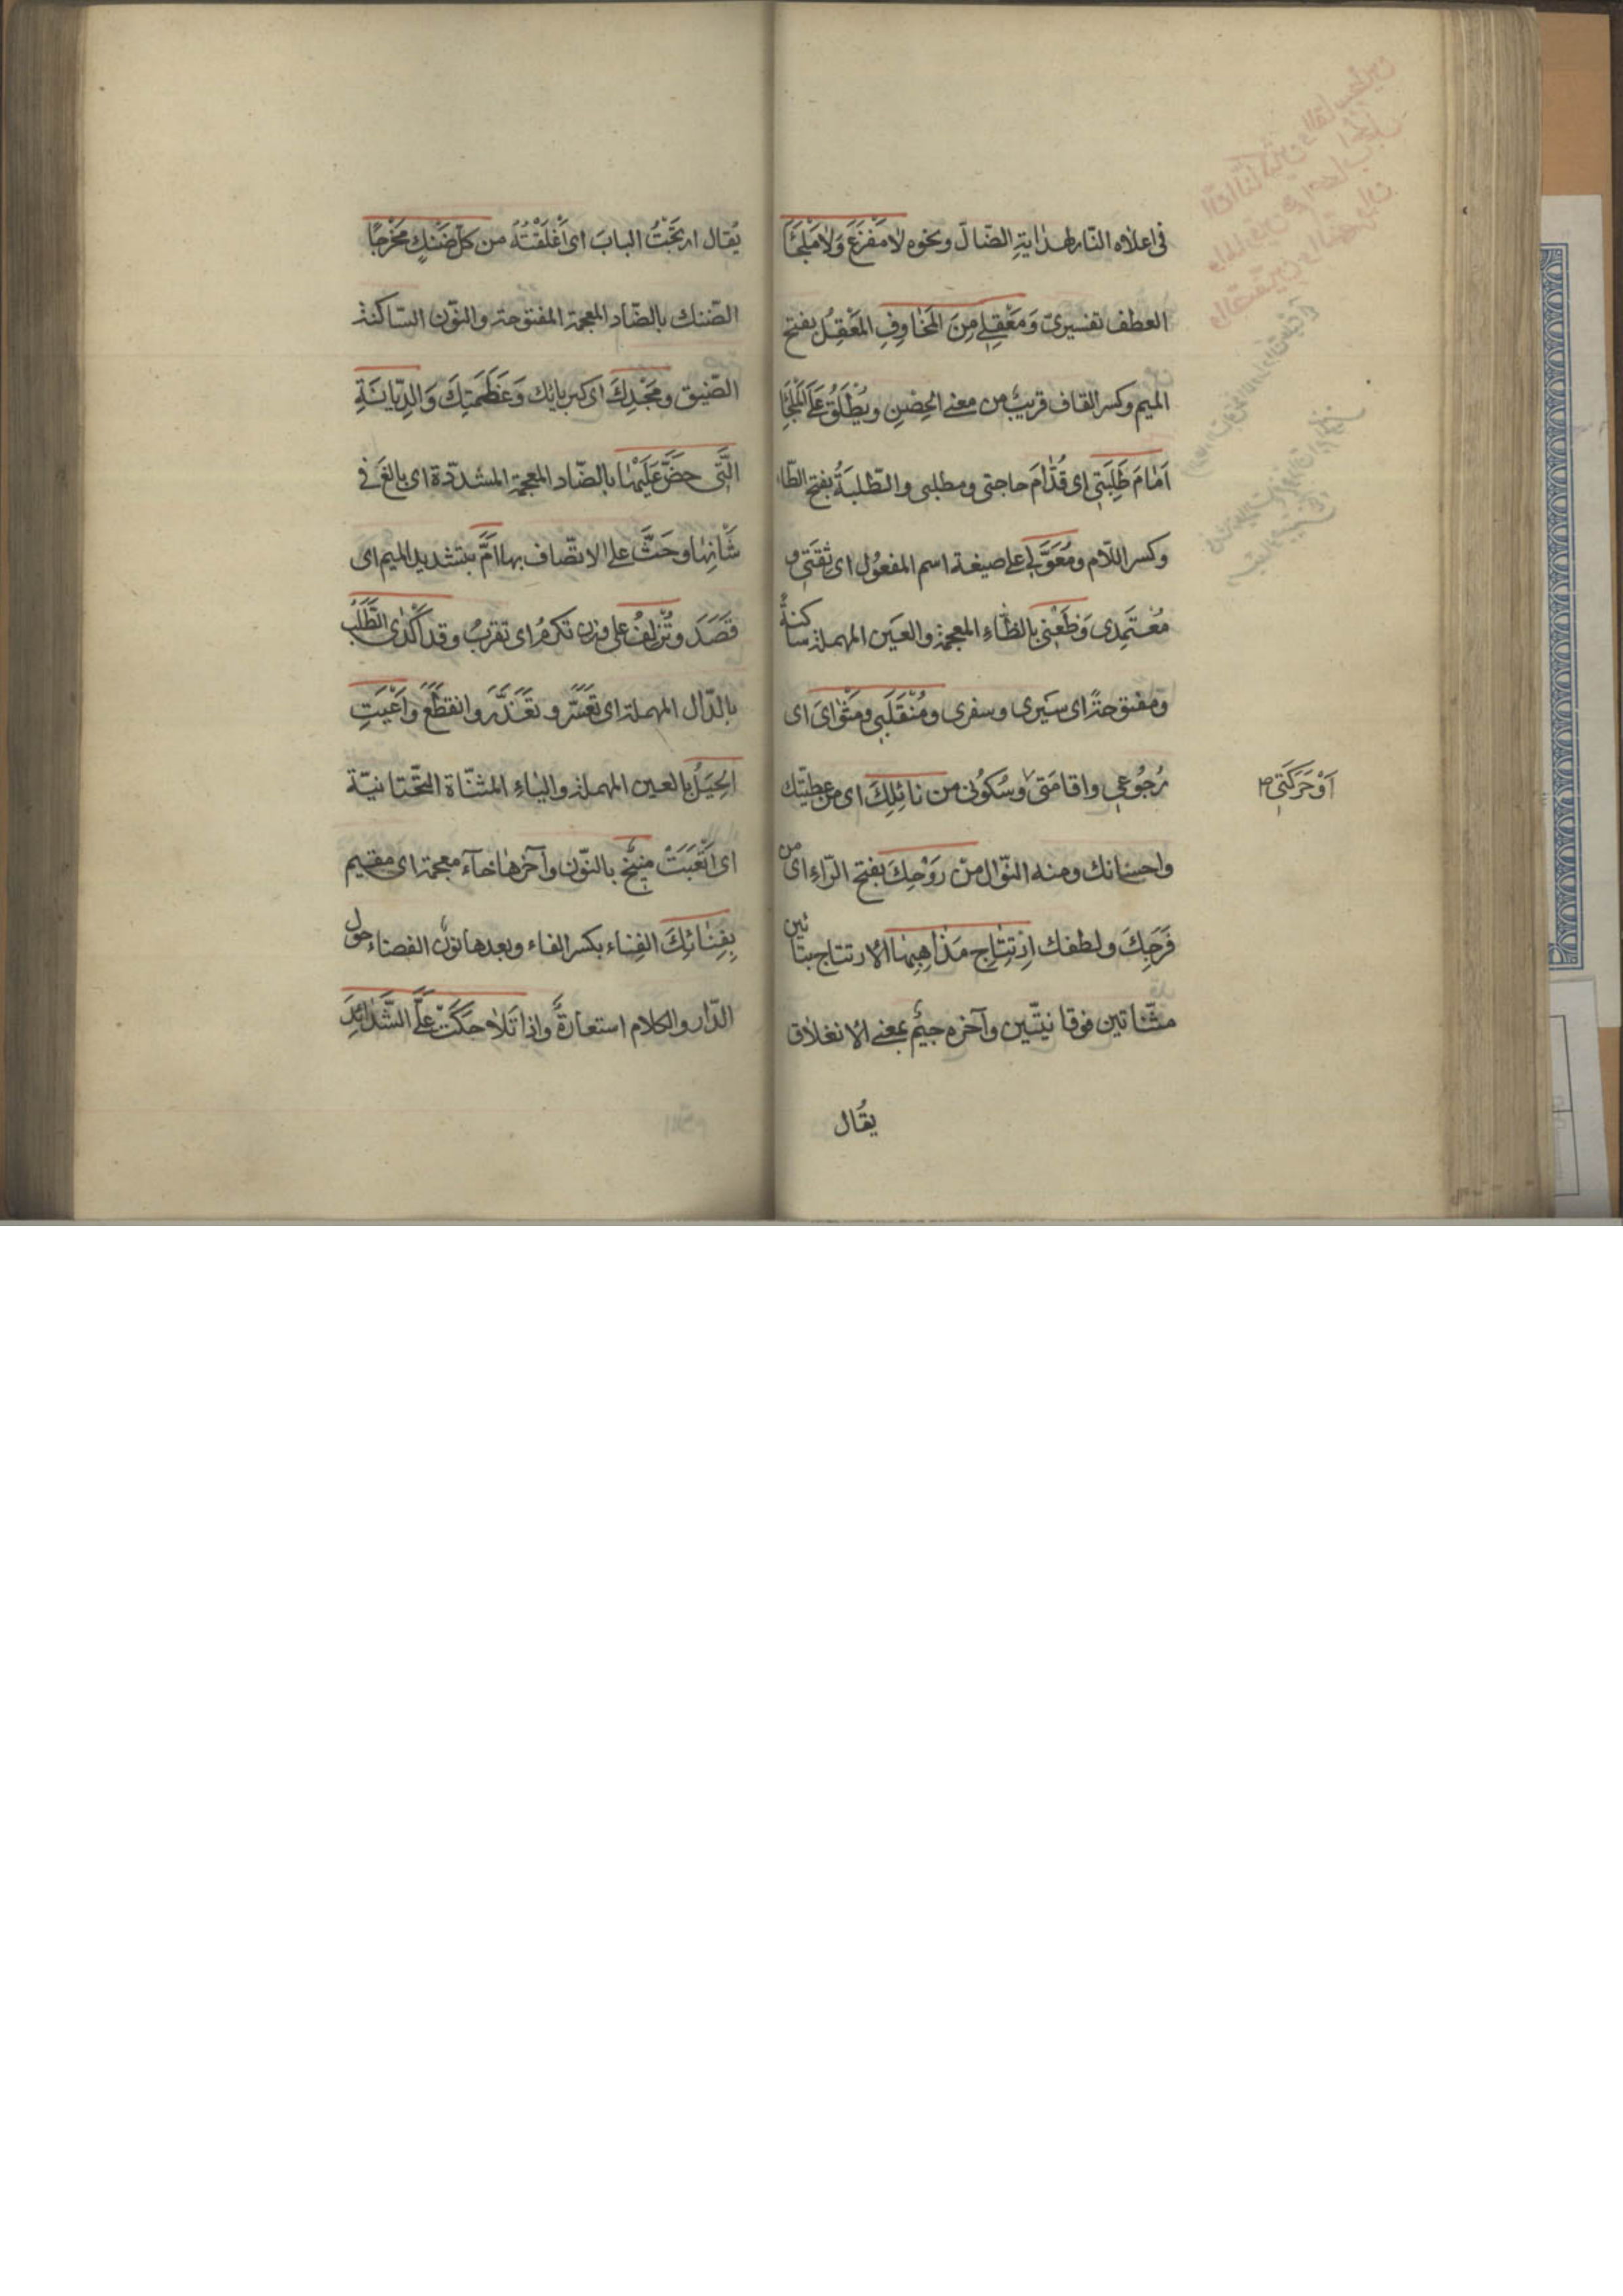 فى اعلاه النّار لهدايةِ الضّالّ ونحوه لا مَفْزَعَ وَلا مَلْجَأَ
العطف تفسيرىّ وَمَعْقِلِى مِنَ المَخَاوِفِ المَعْقِلُ بفتح
الميم وكسر القاف قريبٌ من معنى الحِصْنِ ويُطْلَقُ عَلَى المَلْجَأِ
اَمَامَ طَلِبَتِى اى قُدَّامَ حاجتى ومطلبى والطّلبَةُ بفتح الطّاء
وكسر اللّام ومُعَوَّلِى على صيغة اسم المفعُول اى ثِقَتِى و
مُعْتَمِدى وَظَعْنِى بالظّاءِ المعجمة والعَين المهملة ساكنةً
ومفتوحةً اى سَيرى وسفرى ومُنْقَلَبِى ومَثْوَاىَ اى
رُجُوعى واقامَتى وسُكُونى من نَائِلِكَ اى من عطيّتك
اَوْحَرَكَتِى ص
واحسانك ومنه النّوال مِنْ رَوْحِكَ بفتح الرّاءِ اى من
فَرَجِكَ ولطفك اِرْتِتَاجِ مَذَاهِبِهَا الارتتاج بتائين
مثنّاتين فوقانيّتين وآخره جيمٌ بمعنى الانغلاق
يُقال
يُقال ارتَجْتُ البابَ اى اَغْلَقْتُهُ من كلّ ضَنْكٍ مَخْرَجًا
الضّنك بالضّاد المعجمة المفتوحة والنّون السّاكنة
الضّيق ومَجْدِكَ اى كبريائِك وَعَظَمَتِكَ وَالدِّيَانَةِ
الَّتِى حَضَّ عَلَيْهَا بالضّاد المعجمة المشدّدة اى بالَغَ فى
شَأْنِهَا وحَثَّ على الاتّصاف بها اَمَّ بتشديد الميم اى
قَصَدَ وتُزْلِفُ على وزن تكرمُ اى تقربُ وقد اَكْدَى الطَّلَبُ
بالدّال المهملة اى تعَسَّرَ وتعَذَّرَ وانقطَعَ وَاَعْيَتِ
الحِيَلُ بالعين المهملة والياءِ المثنّاة التّحتانيّة
اى اَتْعَبَتْ مُنِيخٌ بالنّون وآخرها خاءٌ معجمة اى مقيم
بِفِنَائِكَ الفِناء بكسر الفاء وبعدها نون الفضاء حول
الدّار والكلام استعارةً واذا تَلَاحَكَتْ عَلَىَّ الشَّدَائِدَ